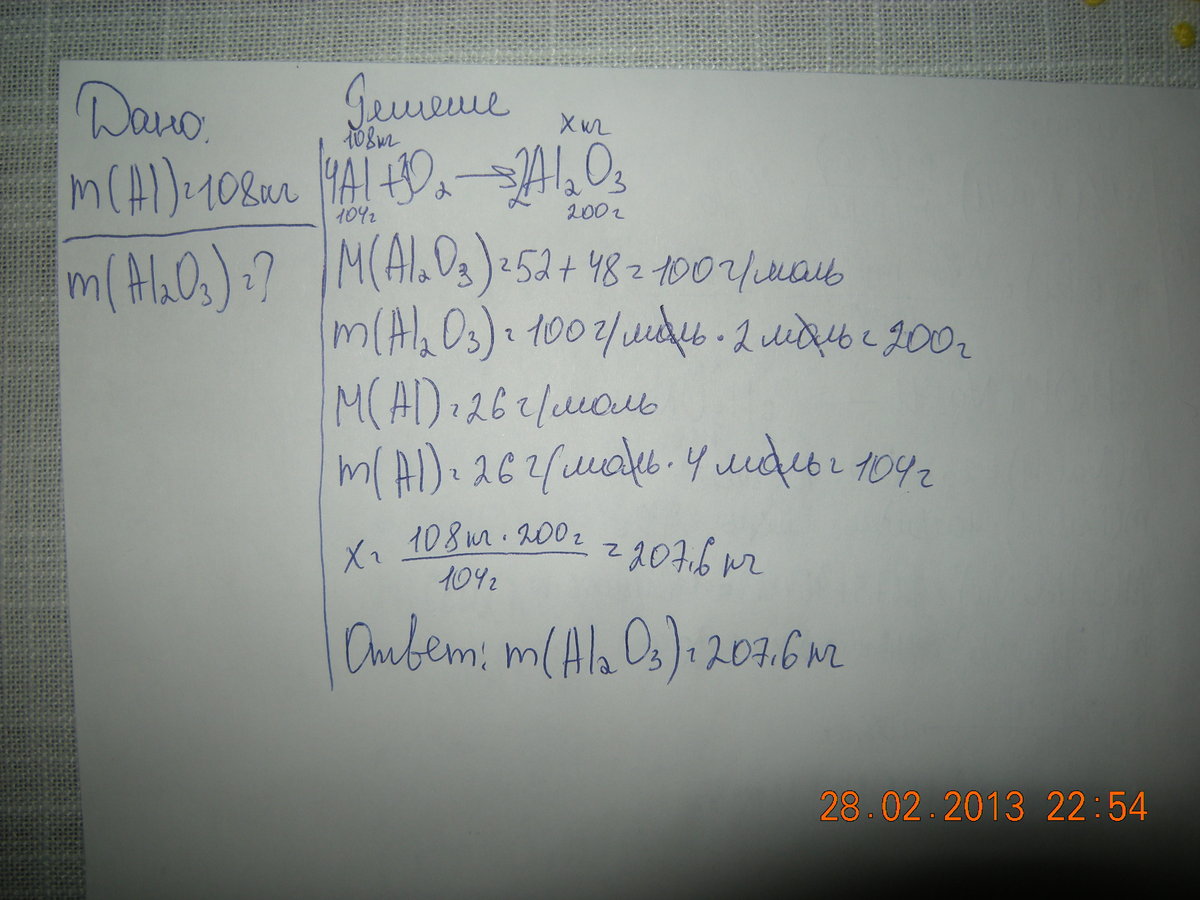 Дано:
m(Al)=108кг
m(Al₂O₃)=?
Решение
108кг хкг
4Al + 3O₂ → 2Al₂O₃
104г 200г
M(Al₂O₃)=52+48=100г/моль
m(Al₂O₃)=100г/моль·2моль=200г
M(Al)=26г/моль
m(Al)=26г/моль·4моль=104г
x= 108кг·200г / 104г =207,6кг
Ответ: m(Al₂O₃)=207,6кг
28.02.2013 22:54